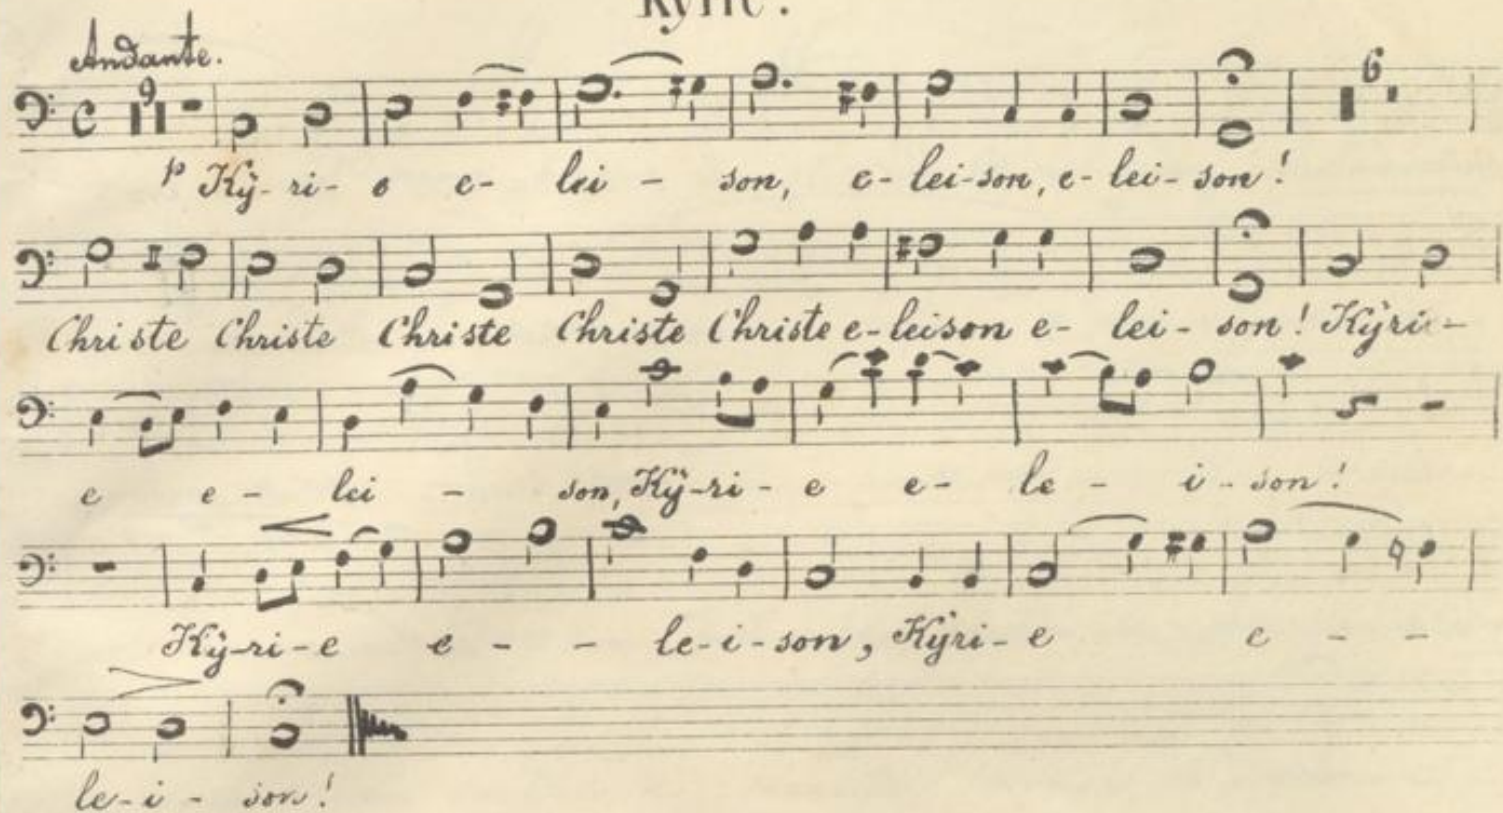 Kyrie.
Andante.
9 6
p Kÿ-ri-e e- lei - son, e-lei-son, e-lei-son!
Christe Christe Christe Christe Christe e-leison e- lei- son! Kÿrie-
e e- lei - son, Kÿ-ri-e e- le- i-son!
Kÿ-ri-e e - - le-i-son, Kÿri-e e - -
le-i- son!